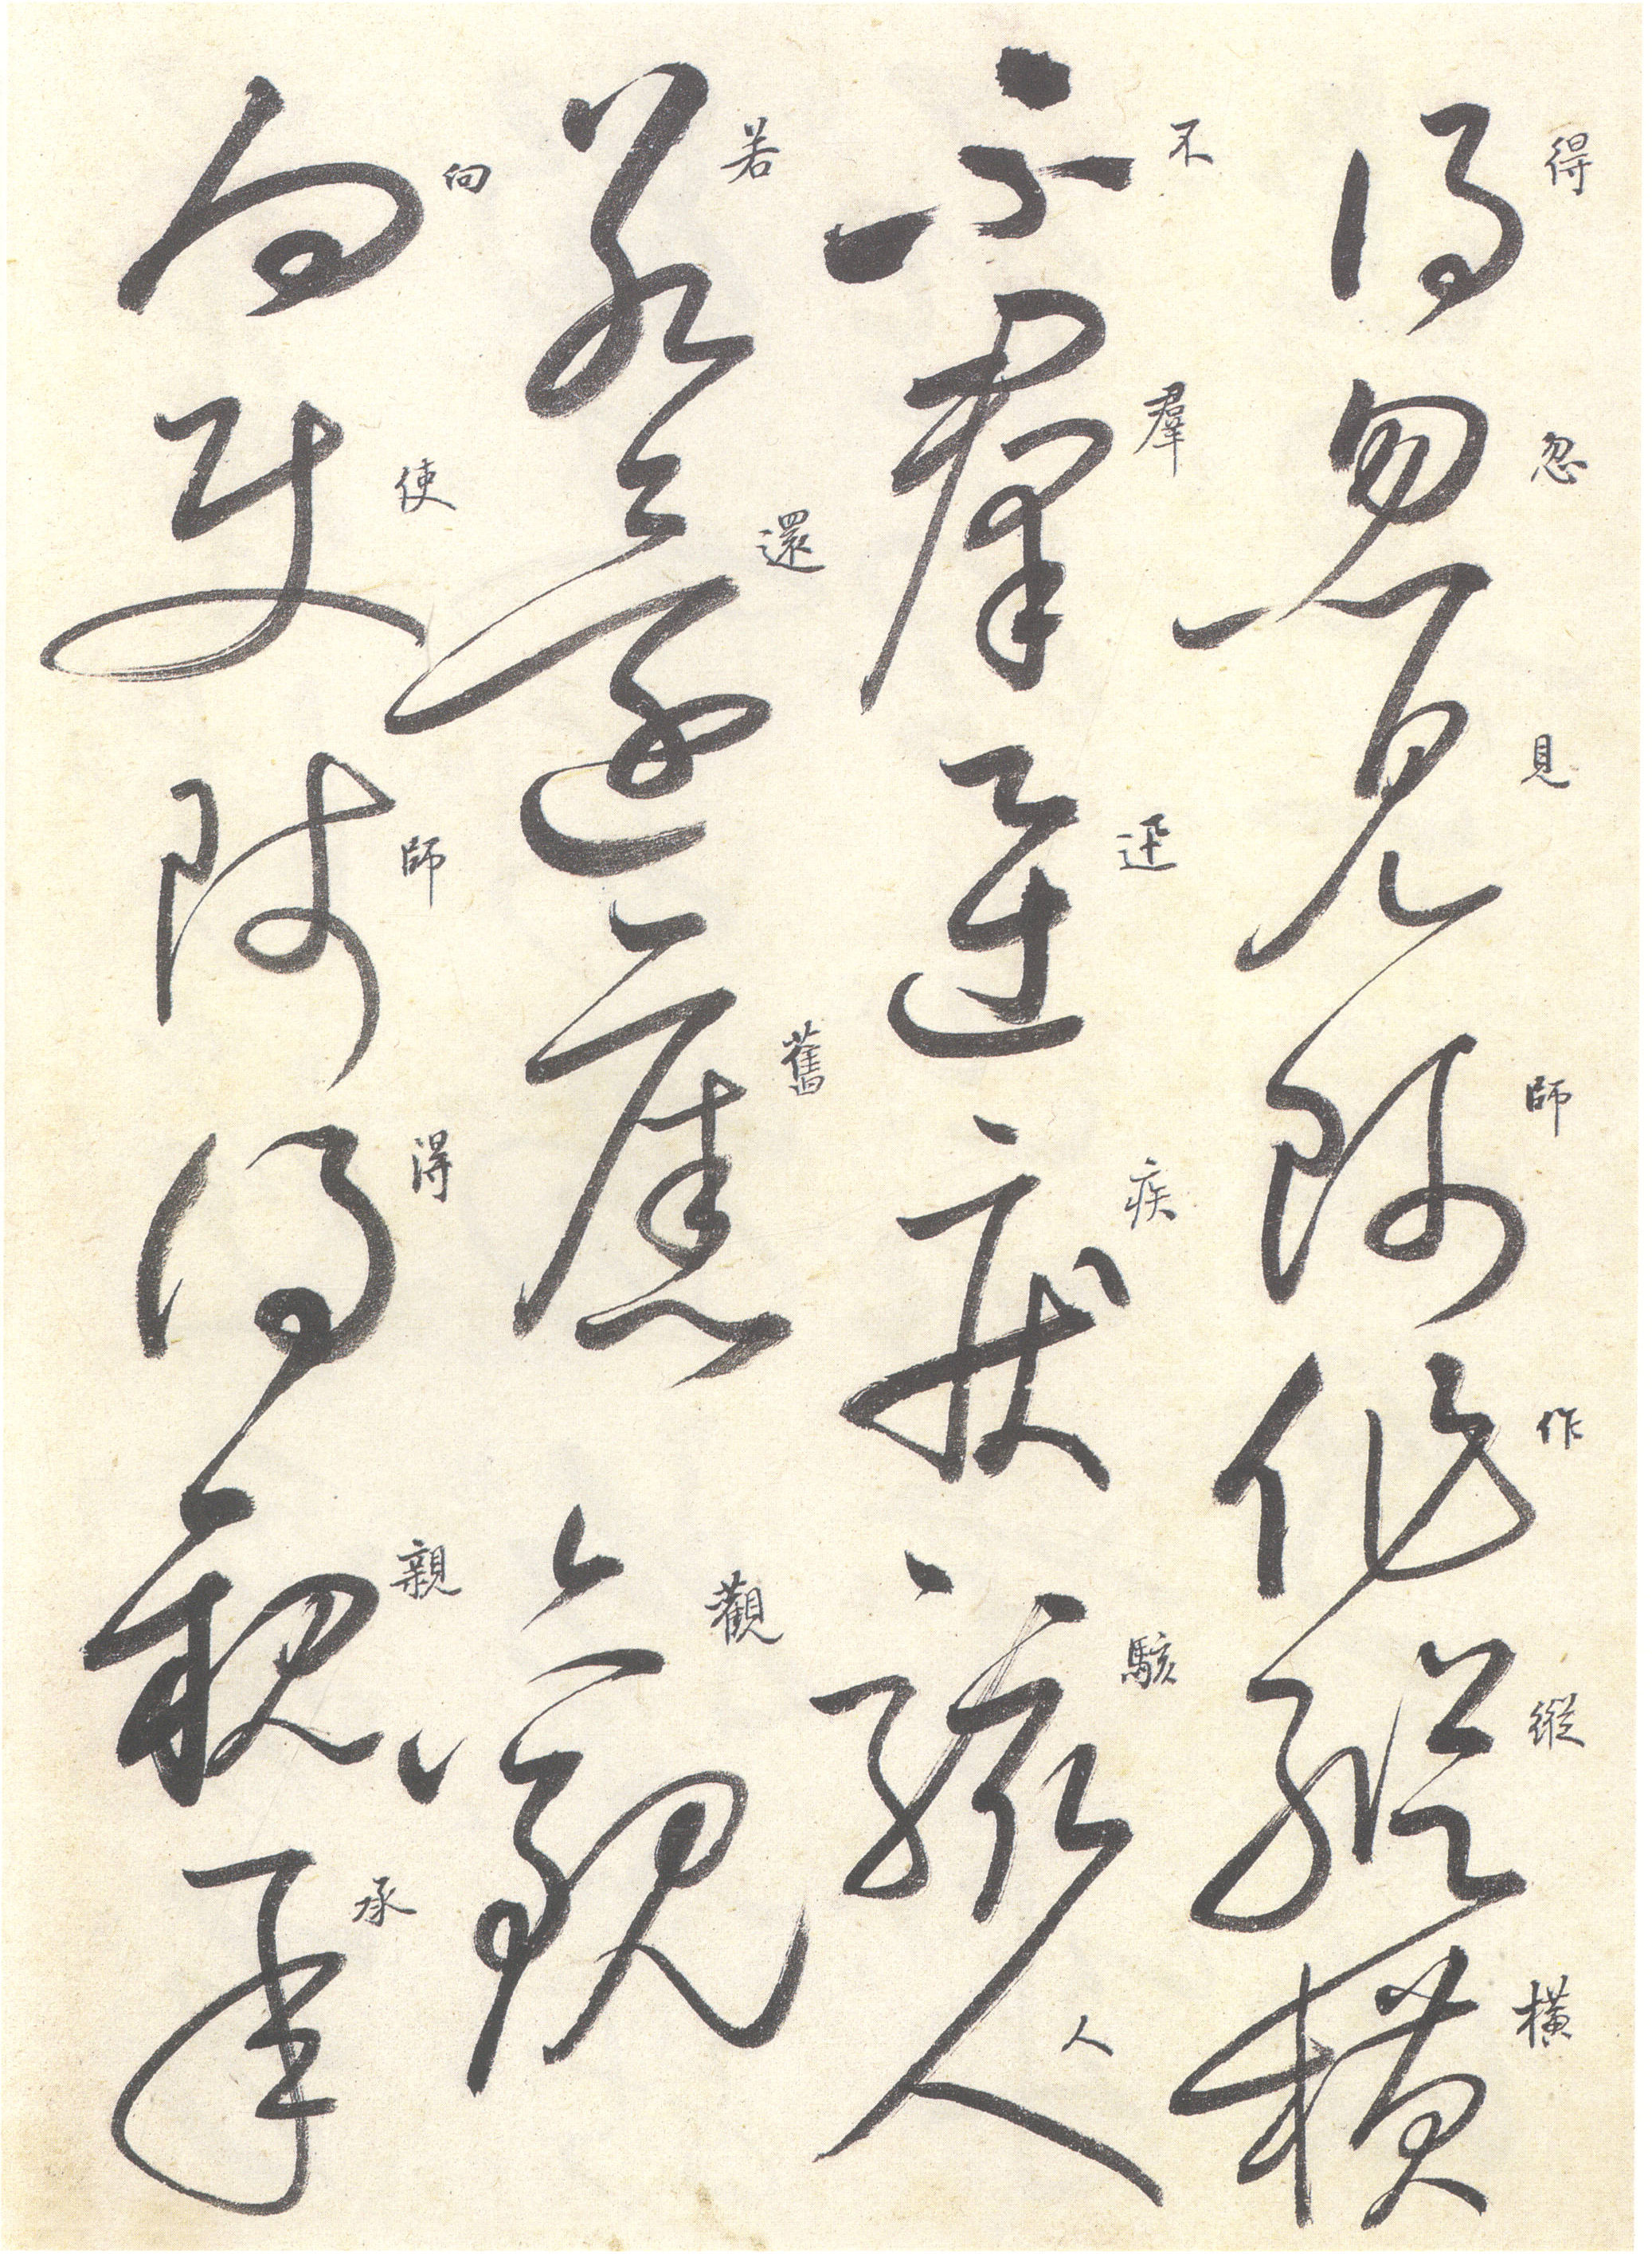 得忽見師作縱橫
不羣迅疾駭人
若還舊觀
向使師得親承